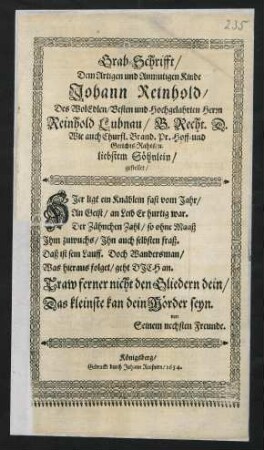 235
Grab-Schrifft/
Dem Artigen und Anmutigen Kinde
Johann Reinhold/
Des WolEdlen/Vesten und Hochgelahrten Herrn
Reinhold Lubnau/ B. Recht. D.
Wie auch Churfl. Brand. Pr. Hoff-und
Gerichts Rahts/ꝛc.
liebsten Söhnlein/
gestellet/
HIer ligt ein Knäblein fast vom Jahr/
An Geist/ an Leib Er hurtig war.
Der Zähnchen Zahl/ so ohne Maaß
Ihm zuwuchs/ Ihn auch selbsten fraß.
Daß ist sein Lauff. Doch Wandersman/
Was hieraus folget/ geht DICH an.
Traw ferner nicht den Gliedern dein/
Das kleinste kan dein Mörder seyn.
von
Seinem nechsten Freunde.
Königsberg/
Gedruckt durch Johann Reusnern/ 1654.